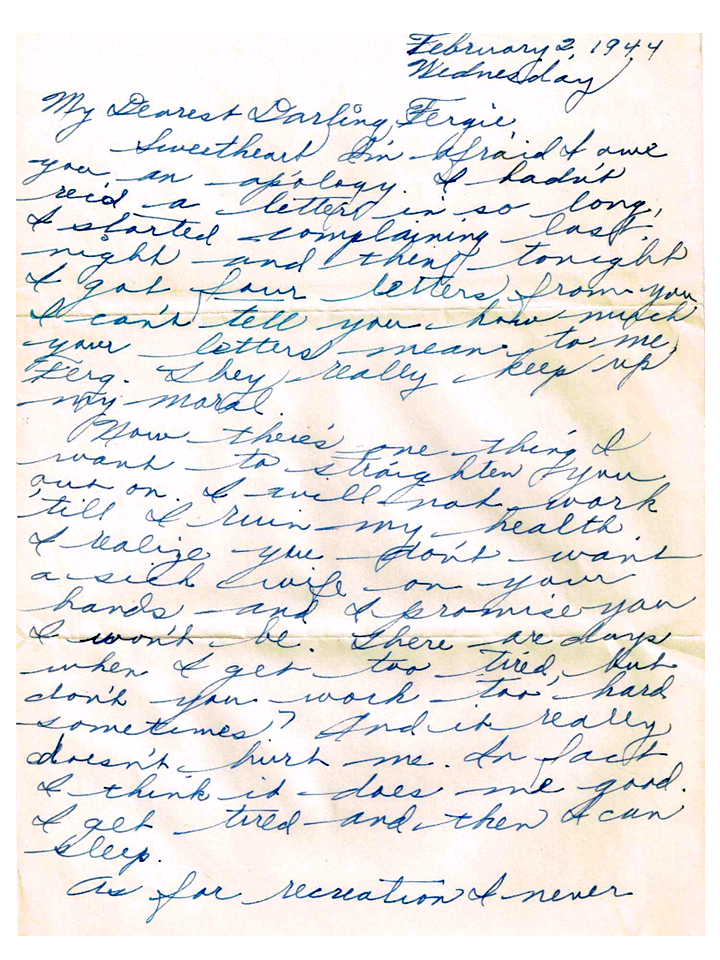 February 2, 1944
Wednesday
My Dearest Darling Fergie
Sweetheart I'm afraid I owe
you an apology. I hadn't
rec'd a letter in so long,
I started complaining last
night and then tonight
I got four letters from you
I can't tell you how much
your letters mean to me,
Ferg. They really keep up
my moral.
Now there's one thing I
want to straighten you
out on. I will not work
'till I ruin my health
I realize you don't want
a sick wife on your
hands and I promise you
I won't be. There are days
when I get too tired, but
don't you work too hard
sometimes? And it really
doesn't hurt me. In fact
I think it does me good.
I get tired and then I can
sleep.
As for recreation I never